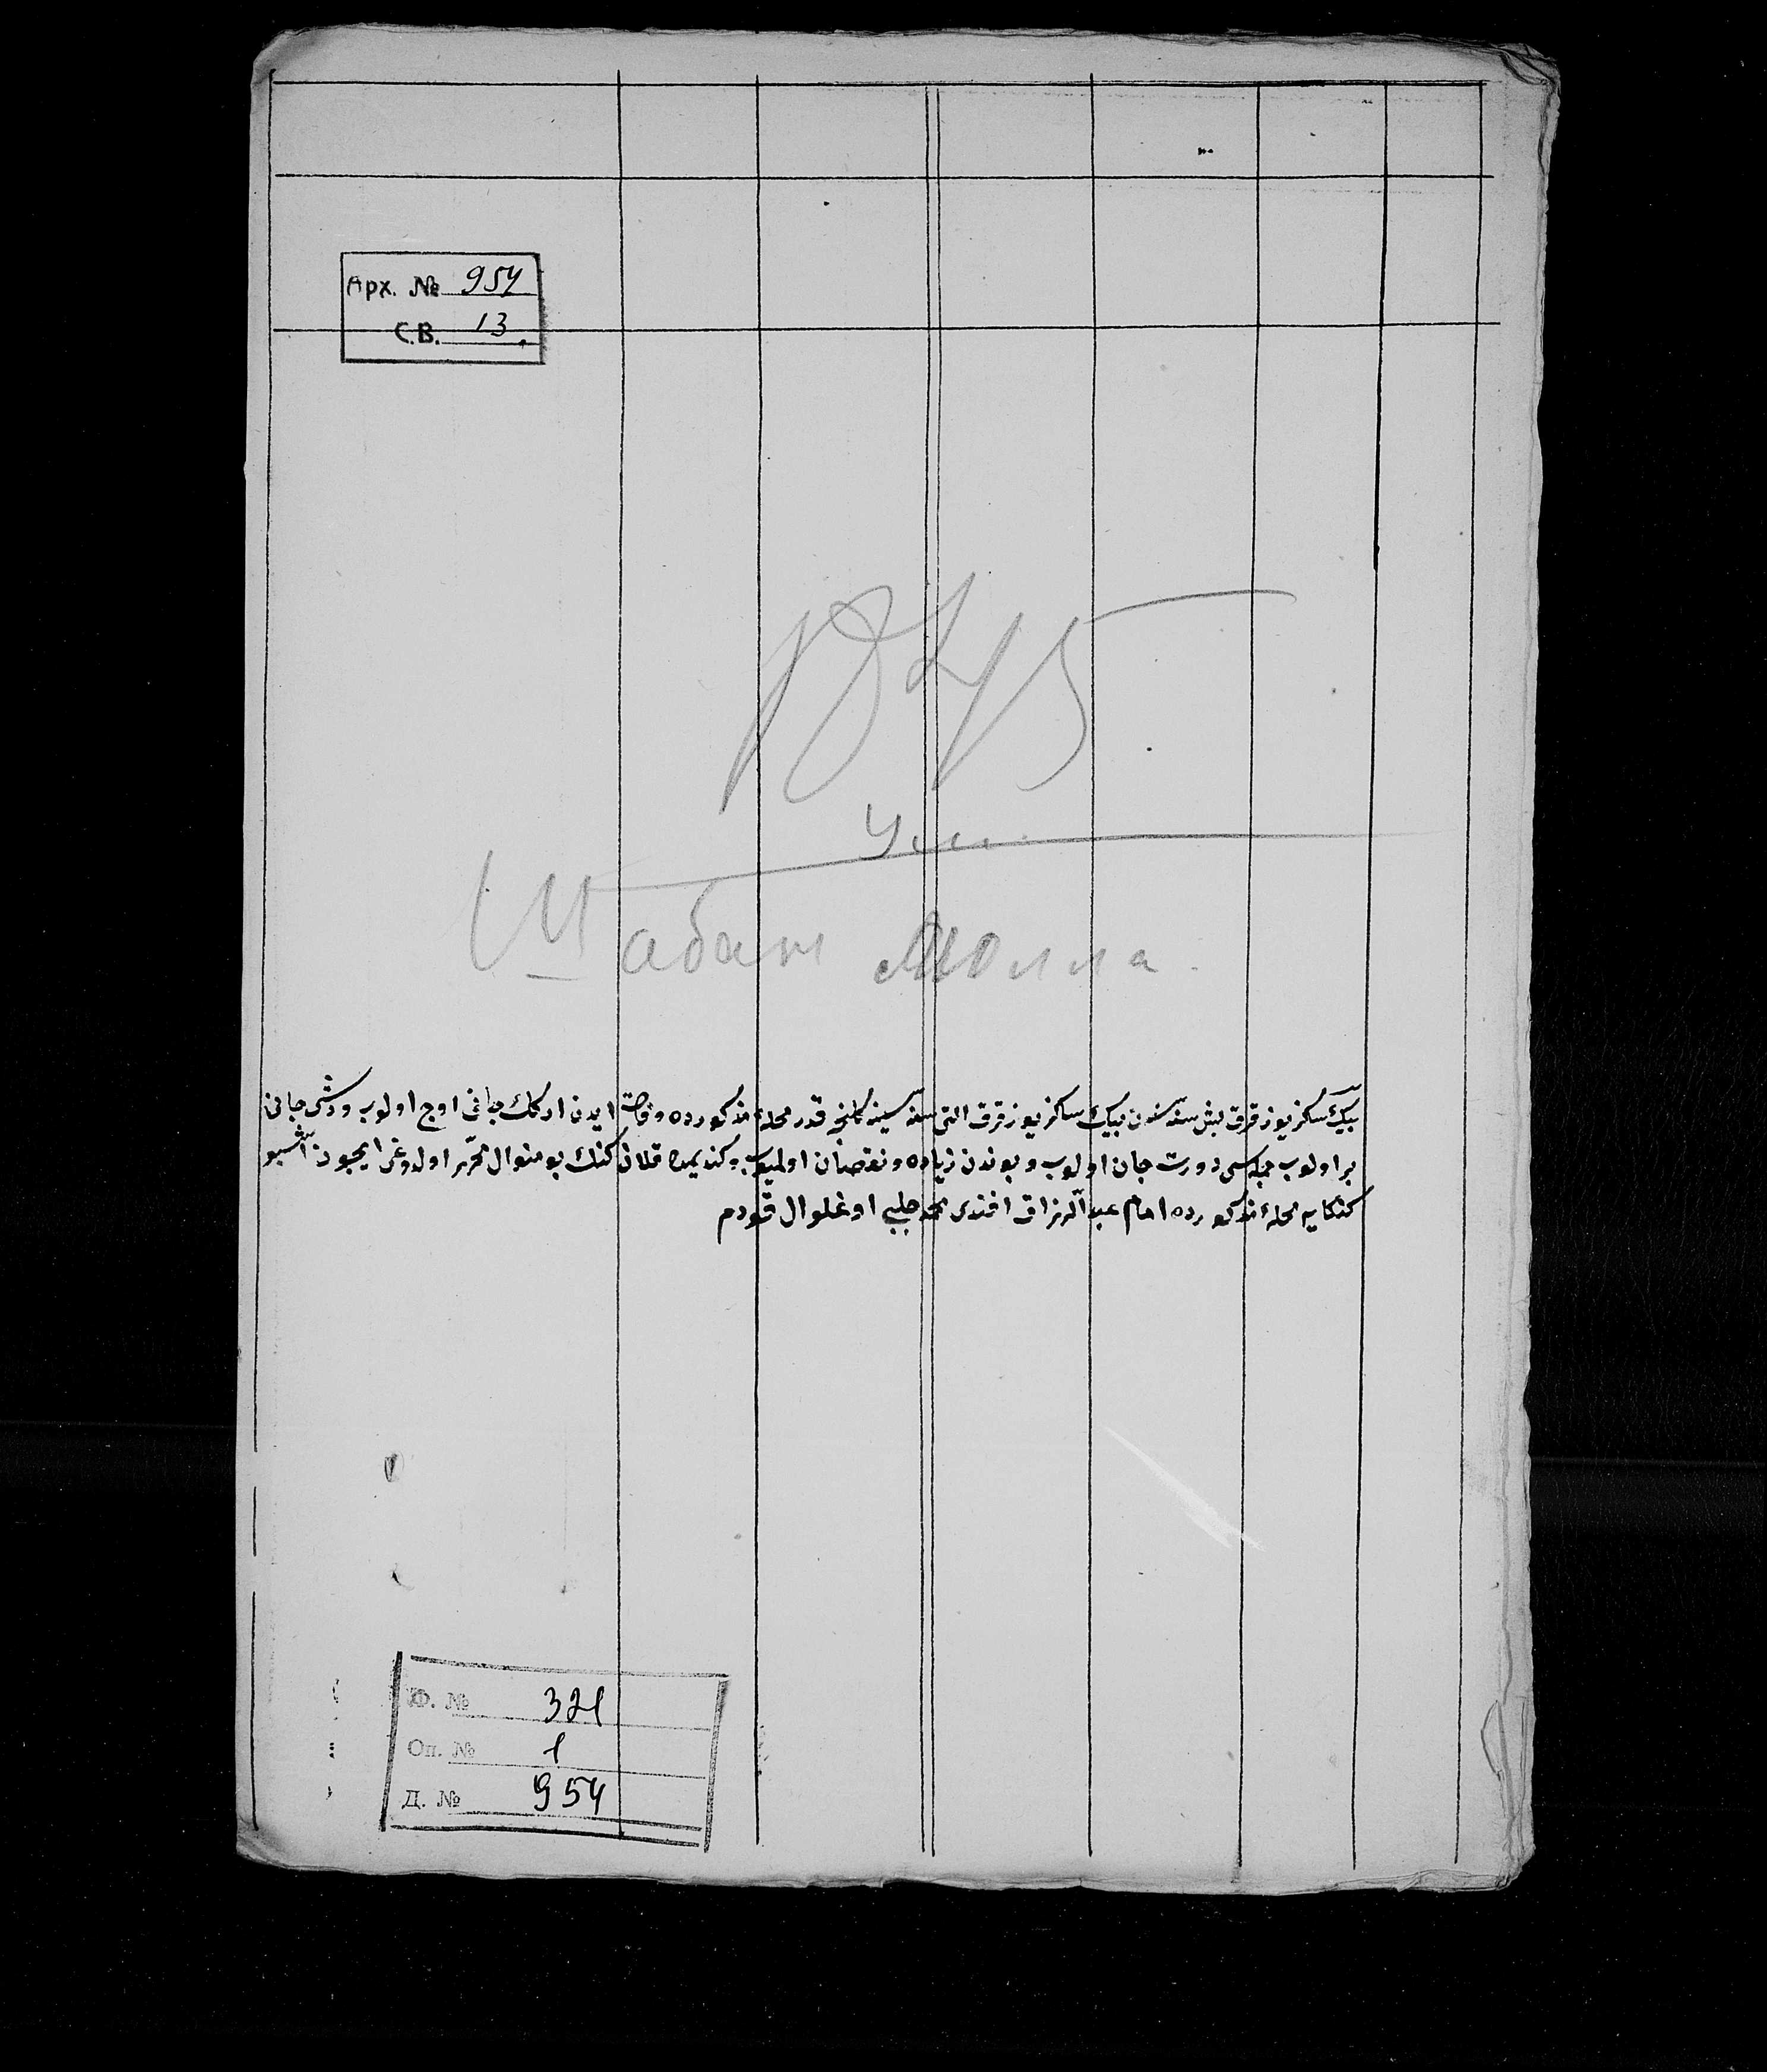 Арх. № 954
С.В. 13.
1845
Шабан Молла.
بيك سكز يوز قرق بش سنه سندن بيك سكز يوز قرق التى سنه سينه كلنجه قدر محلهٔ مذكورده وفات ايدن اركك جانى اوج اولوب و دشى جانى
بر اولوب جمله سى دورت جان اولوب و بوندن زياده و نقصان اولميوب و كنديمده قلان كنك بو منوال محرر اولدوغى ايچون اشبو
محلهٔ مذكورده امام عبد الرزاق افندى محمد چلبى اوغلو ال قودم
Ф. № 321
Оп. № 1
Д. № 954